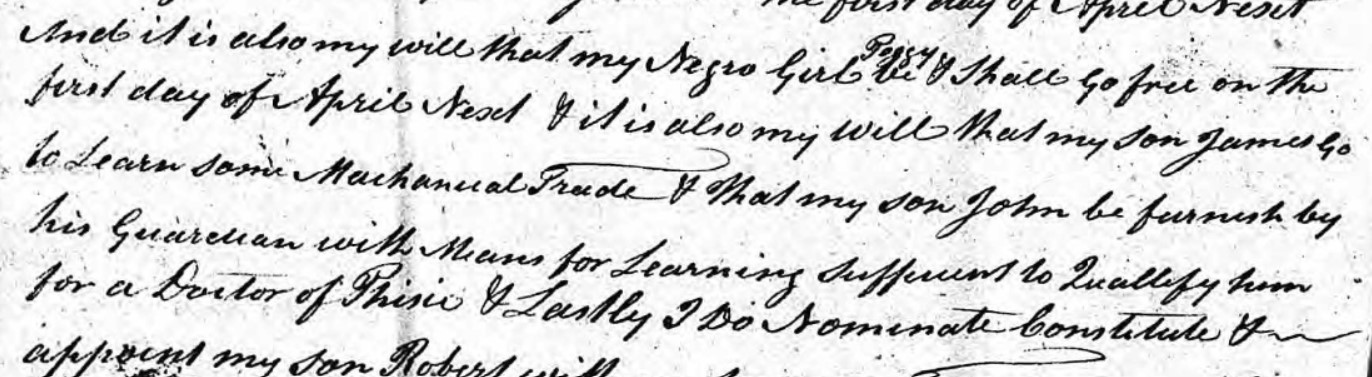 the first day of April Next
And it is also my will that my Negro Girl Peggy be & Shall Go free on the
first day of April Next & it is also my will that my son James Go
to Learn some Machanical Trade & that my son John be furnish by
his Guardian with Means for Learning Suffecient to Quallefy him
for a Doctor of Phisic & Lastly I Do Nominate Constitute &
appoint my son Robert with